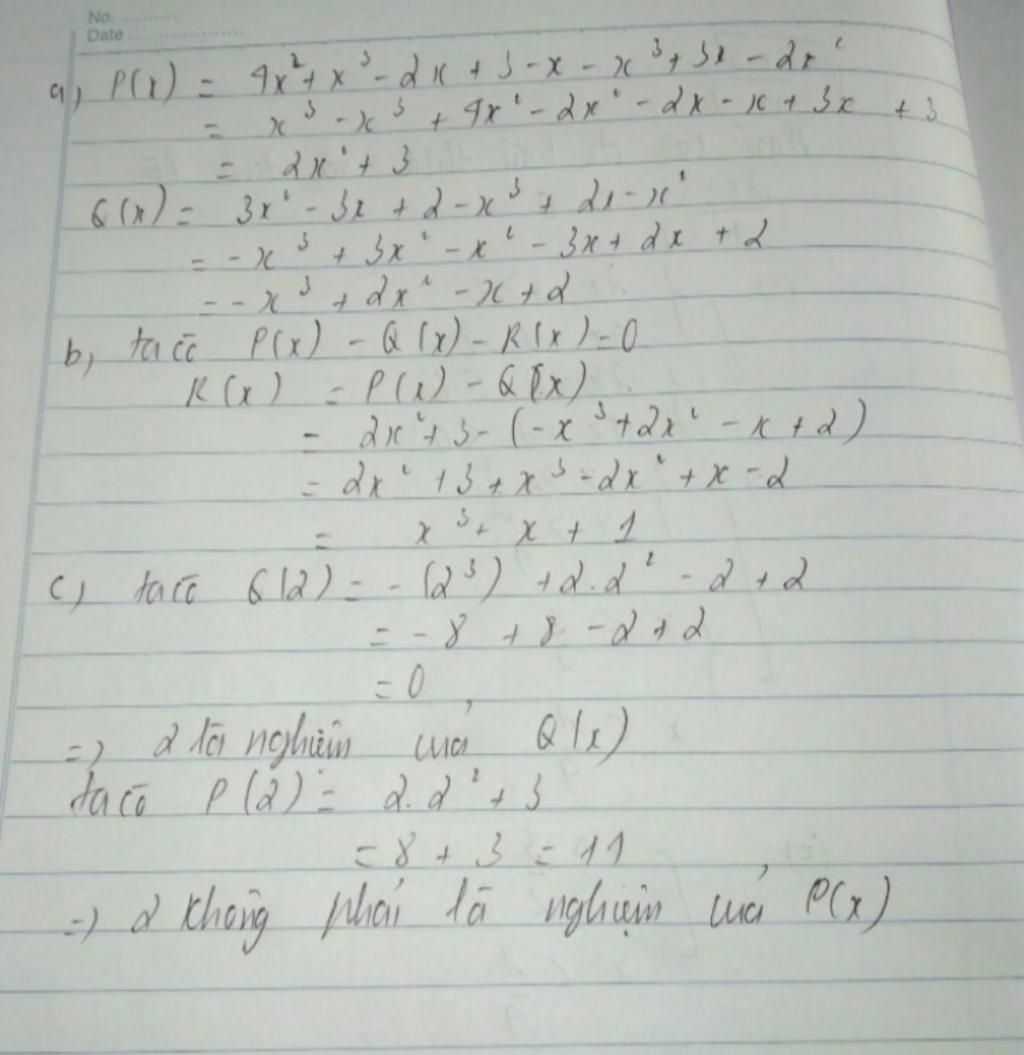 No. ..........
Date ....................
a) P(x) = 4x² + x³ - 2x + 3 - x - x³ + 3x - 2x²
= x³ - x³ + 4x² - 2x² - 2x - x + 3x + 3
= 2x² + 3
Q(x) = 3x² - 3x + 2 - x³ + 2x - x²
= - x³ + 3x² - x² - 3x + 2x + 2
= - x³ + 2x² - x + 2
b) ta có P(x) - Q(x) - R(x) = 0
R(x) = P(x) - Q(x)
= 2x² + 3 - (-x³ + 2x² - x + 2)
= 2x² + 3 + x³ - 2x² + x - 2
= x³ + x + 1
c) ta có Q(2) = - (2³) + 2.2² - 2 + 2
= - 8 + 8 - 2 + 2
= 0
=> 2 là nghiệm của Q(x)
ta có P(2) = 2.2² + 3
= 8 + 3 = 11
=> 2 không phải là nghiệm của P(x)